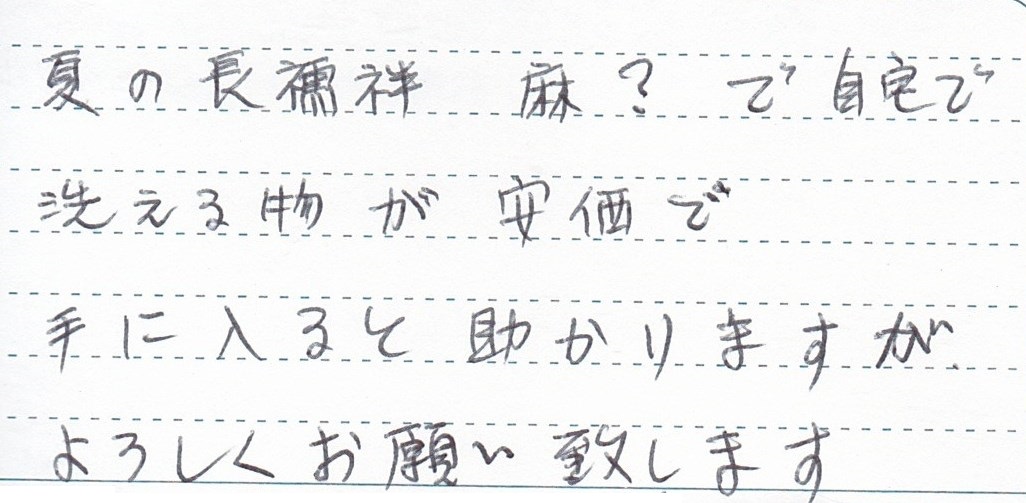 夏の長襦袢 麻？ で自宅で
洗える物が安価で
手に入ると助かりますが、
よろしくお願い致します